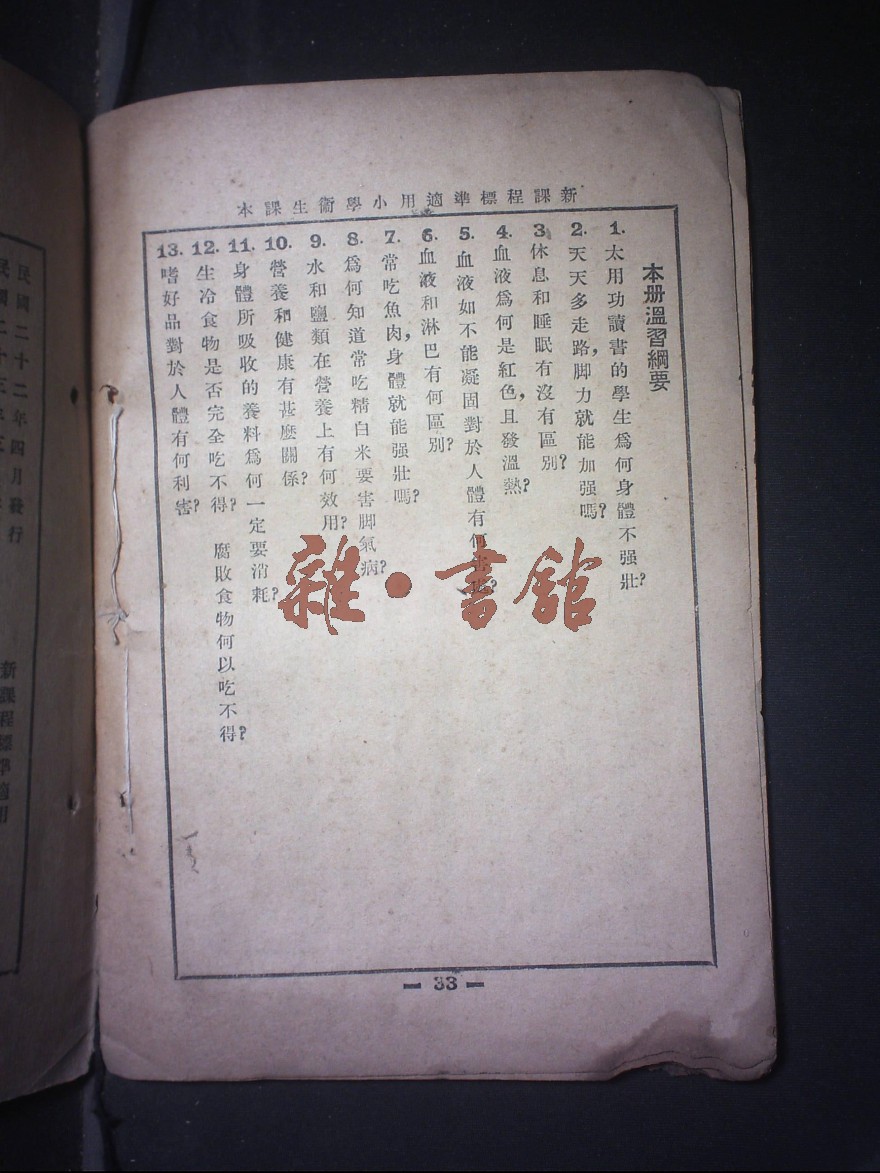 新課程標準適用小學衞生課本
本册溫習綱要
1. 太用功讀書的學生爲何身體不强壯?
2. 天天多走路,脚力就能加强嗎?
3. 休息和睡眠有沒有區别?
4. 血液爲何是紅色,且發溫熱?
5. 血液如不能凝固對於人體有何害處?
6. 血液和淋巴有何區别?
7. 常吃魚肉,身體就能强壯嗎?
8. 爲何知道常吃精白米要害脚氣病?
9. 水和鹽類在營養上有何效用?
10. 營養和健康有甚麽關係?
11. 身體所吸收的養料爲何一定要消耗?
12. 生冷食物是否完全吃不得? 腐敗食物何以吃不得?
13. 嗜好品對於人體有何利害?
— 33 —
雜·書館
新課程標準適用
民國二十二年四月發行
民國二十三年三